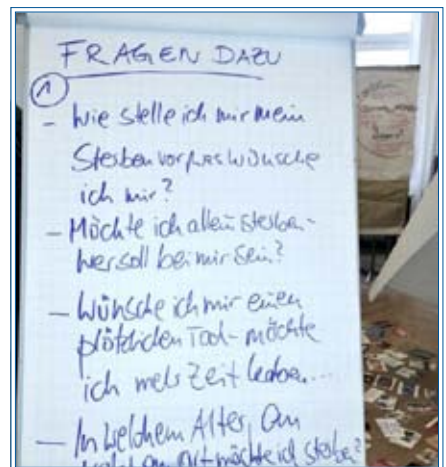 FRAGEN DAZU
1
- Wie stelle ich mir mein
Sterben vor, was wünsche
ich mir?
- Möchte ich allein sterben -
wer soll bei mir sein?
- Wünsche ich mir einen
plötzlichen Tod - möchte
ich mehr Zeit haben...
- In welchem Alter, An
welchem Ort möchte ich sterben?